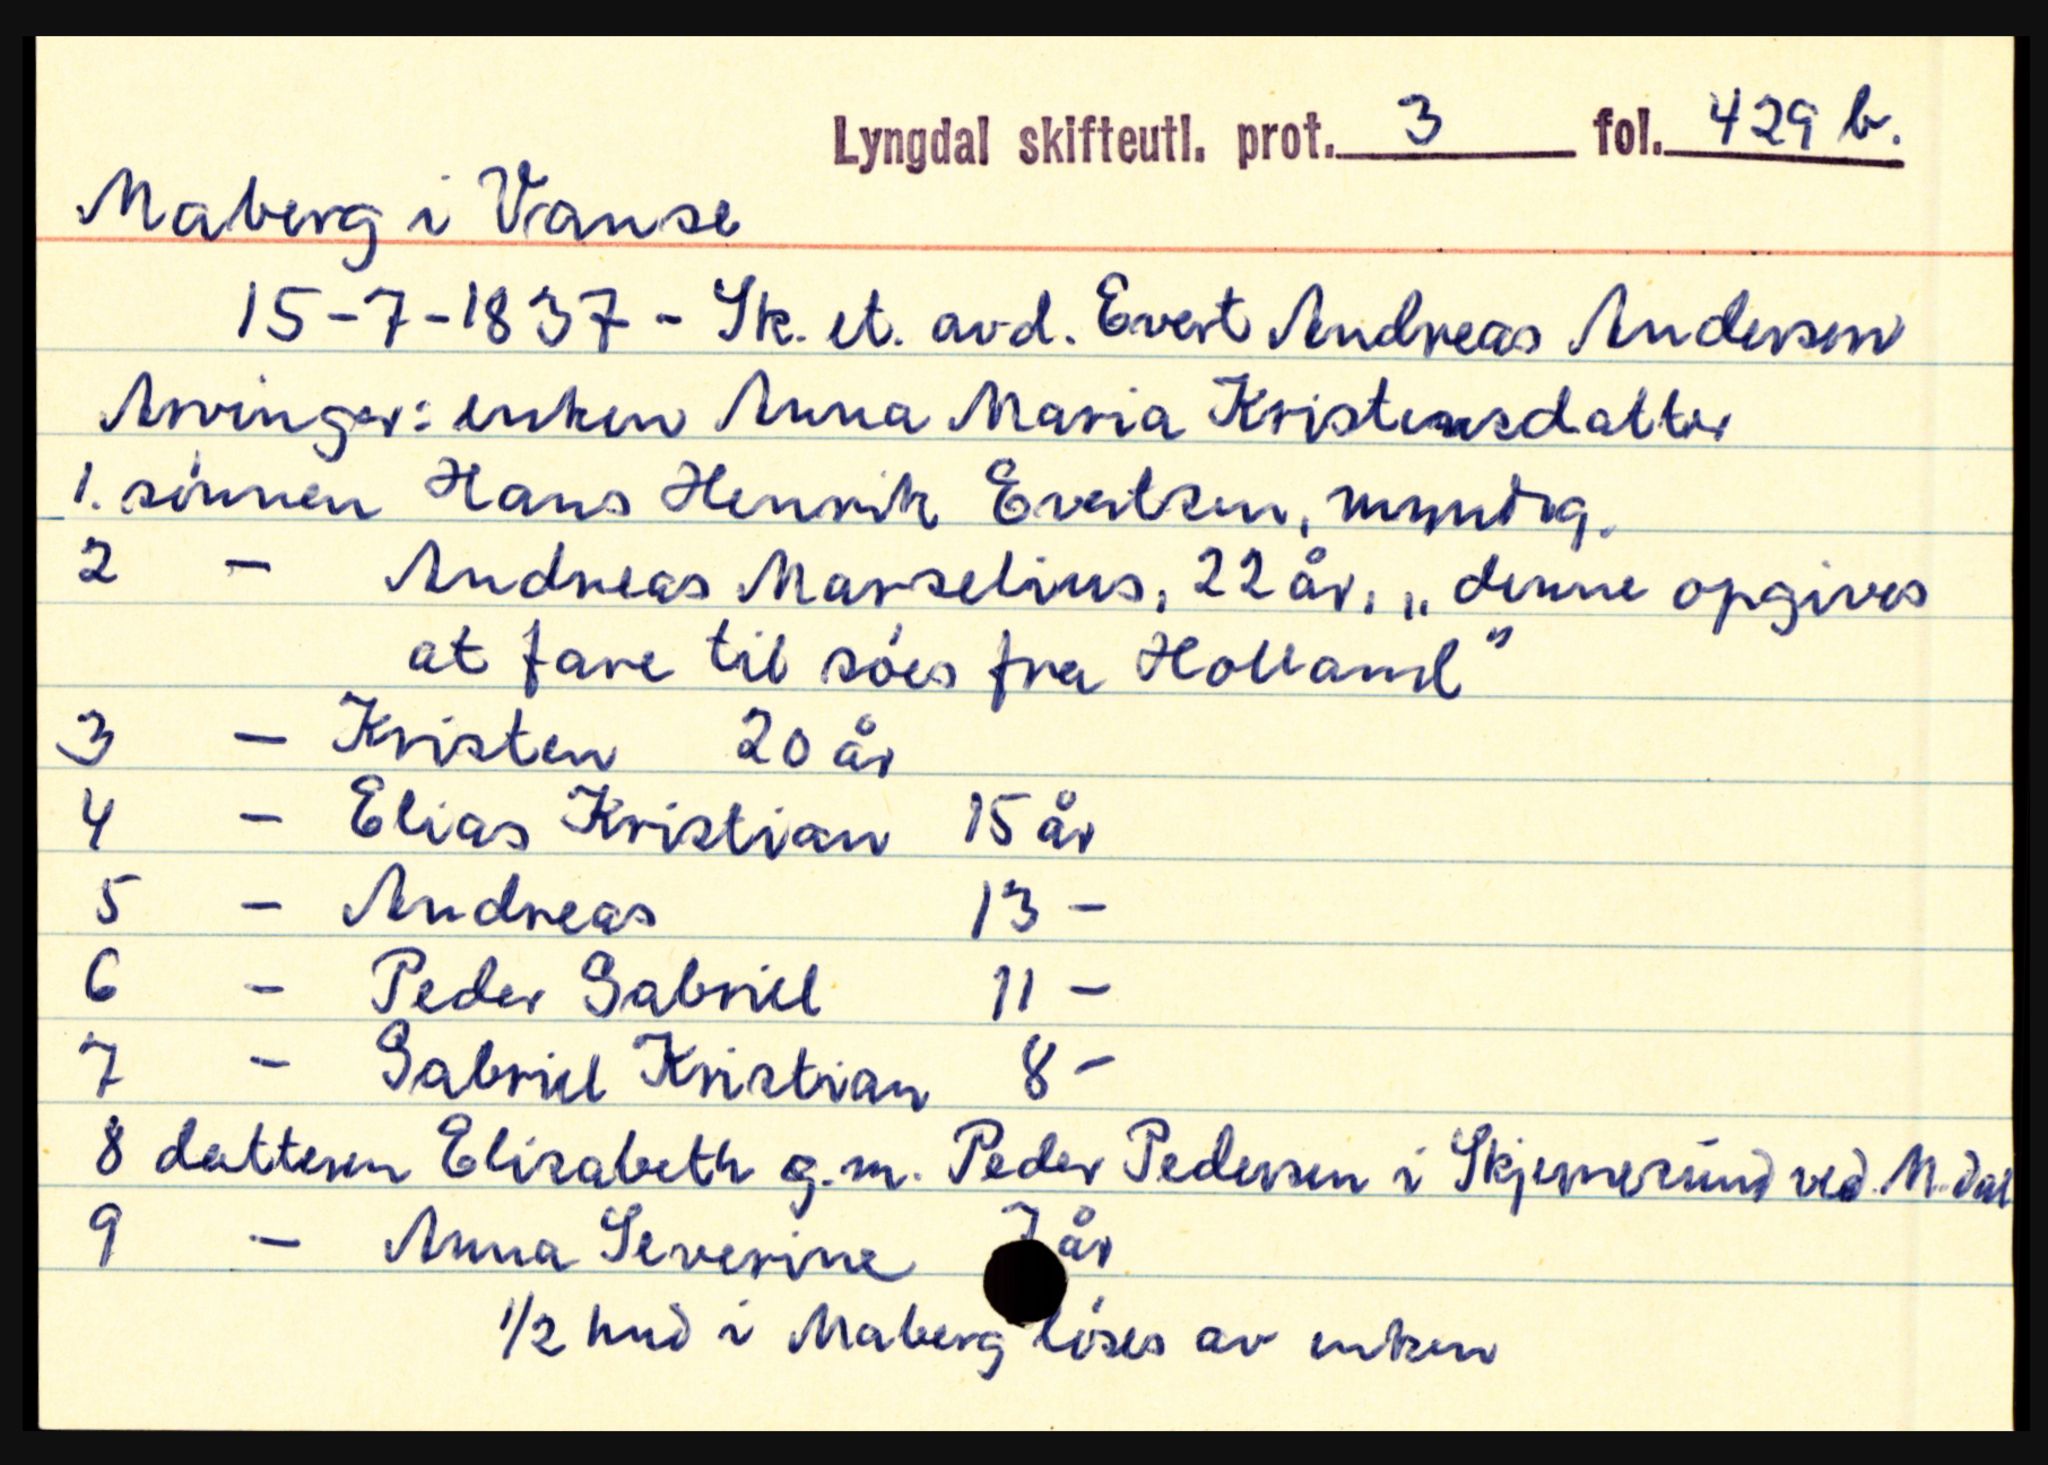 Lyngdal skifteutl. prot. 3 fol. 429 b.
Maberg i Vanse
15-7-1837 - Sk. et. avd. Evert Andreas Andersen
Arvinger: enken Anna Maria Kristensdatter
1. sönnen Hans Henrik Evertsen, myndig.
2 - Andreas Marselius, 22 år, „denne opgives
at fare til söes fra Holland"
3 - Kristen 20 år
4 - Elias Kristian 15 år
5 - Andreas 13 -
6 - Peder Gabriel 11 -
7 - Gabriel Kristian 8 -
8 datteren Elisabeth g.m. Peder Pedersen i Skjernesund ved M.dal
9 - Anna Severine 7 år
1/2 hud i Maberg löses av enken